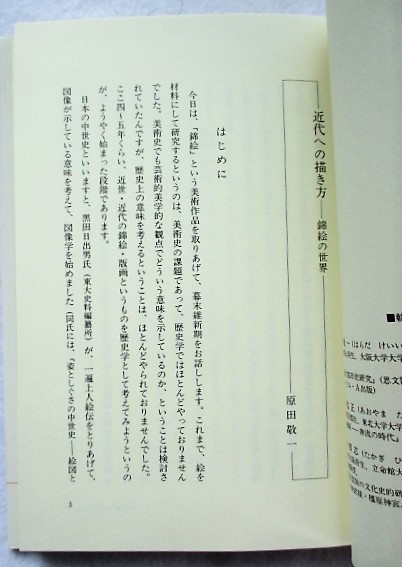 近代への描き方――錦絵の世界
原田敬一
はじめに
今日は、「錦絵」という美術作品を取りあげて、幕末維新期をお話しします。これまで、絵を
材料にして研究するというのは、美術史の課題であって、歴史学ではほとんどやっておりません
でした。美術史でも芸術的美学的な観点でどういう意味を示しているのか、ということは検討さ
れていたんですが、歴史上の意味を考えるということは、ほとんどやられておりませんでした。
ここ四〜五年くらい、近世・近代の錦絵・版画というものを歴史学として考えてみようというの
が、ようやく始まった段階であります。
日本の中世史といいますと、黒田日出男氏（東大史料編纂所）が、一遍上人絵伝をとりあげて、
図像が示している意味を考えて、図像学を始めました（同氏には、『姿としぐさの中世史――絵図と
3